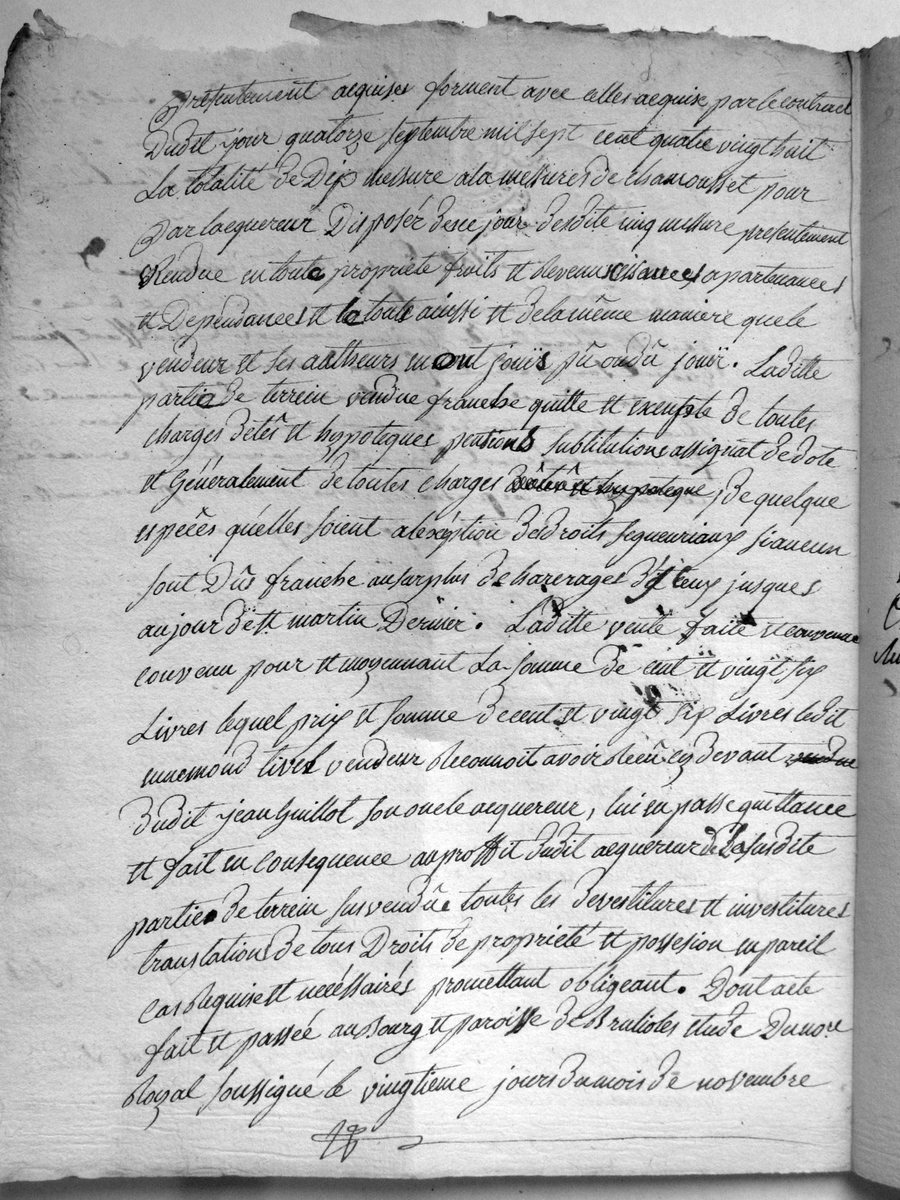 Presentement aequises forment avec celles aequise par le contract
Dudit jour quatorze septembre mil sept cent quatre vingt huit
La totalité de Dix messure ala messures de chamousset pour
Par laequereur Disposér desce jour desdite cinq messure presentement
Vendue en toute propriété fruits et Revenus aisances apartenances
et Dependances et le touts ainssi et de la même maniere que le
vendeur et ses autheurs en ont jouïs pû ou dû jouir. Laditte
partie de terrein vendue franche quitte et exempte de toutes
charges dètes et hypoteques pentions substitutions assignat de dote
et Généralement de toutes charges dètes et hypoteque, de quelque
espéces qu'elles soient alexéption des droits segneuriaux siaucun
sont Dûs franche ausurplus de harerages d'iceux jusques
aujour de st. martin Dérnier. Laditte vente faite et convenue
convenu pour et moyennant La somme de cent et vingt six
Livres lequel prix et somme de cent et vingt six Livres ledit
ennemond vendeur Reconnoit avoir Recû cy devant
dudit jean Guillot son oncle aequereur, lui en passe quittance
et fait en consequence au proffit dudit aequereur de la susdite
partie de terrein sus vendûe toutes les devestitures et investitures
translations de tous Droits de propriété et possesion en pareil
cas Requise et nécéssairés promettant obligeant. Dont acte
fait et passée au Bourg et paroisse de Brulioles etude Du nore
Royal soussigné le vingtieme jours du mois de novembre